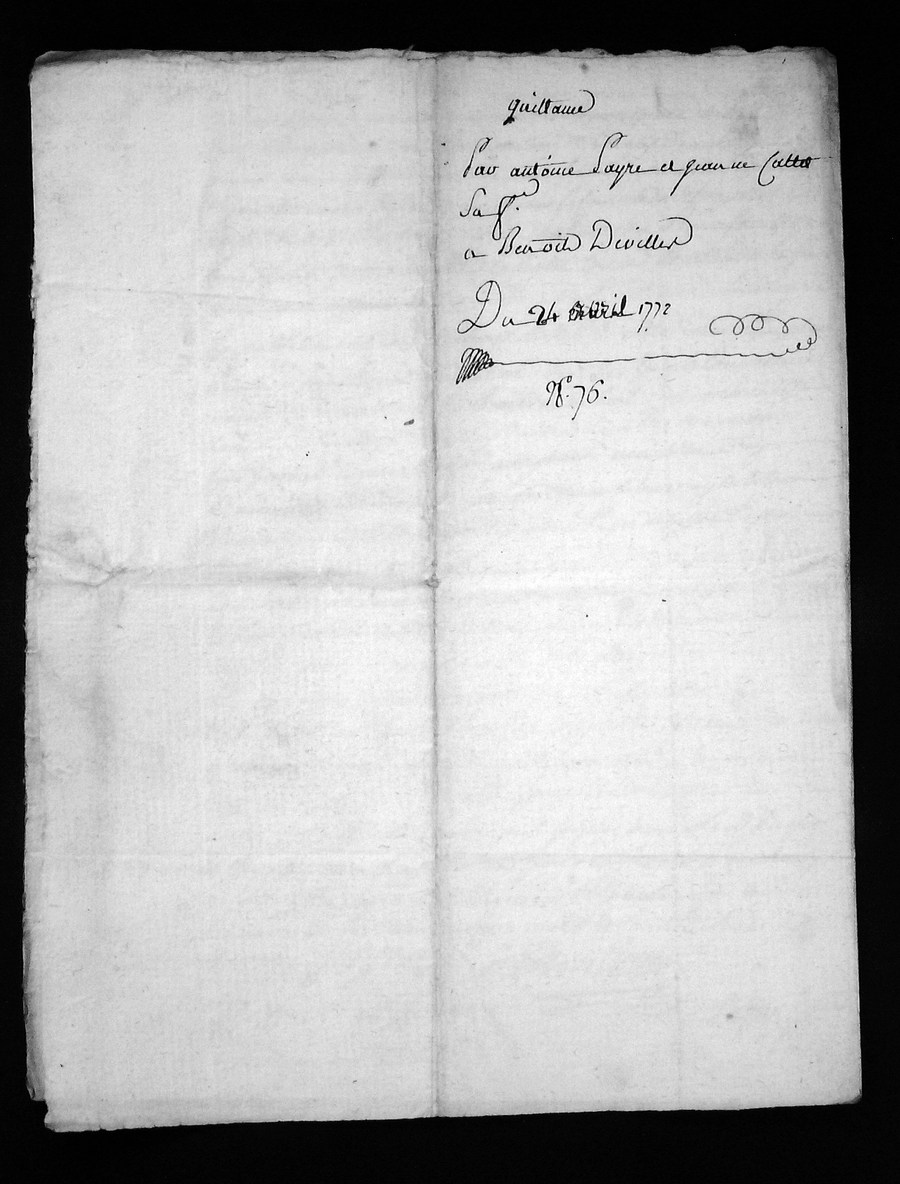 quittance
Par antoine Payre et jeanne
Sa f.e
a Benoit Deviller
Du 24 avril 1772
N.o 76.